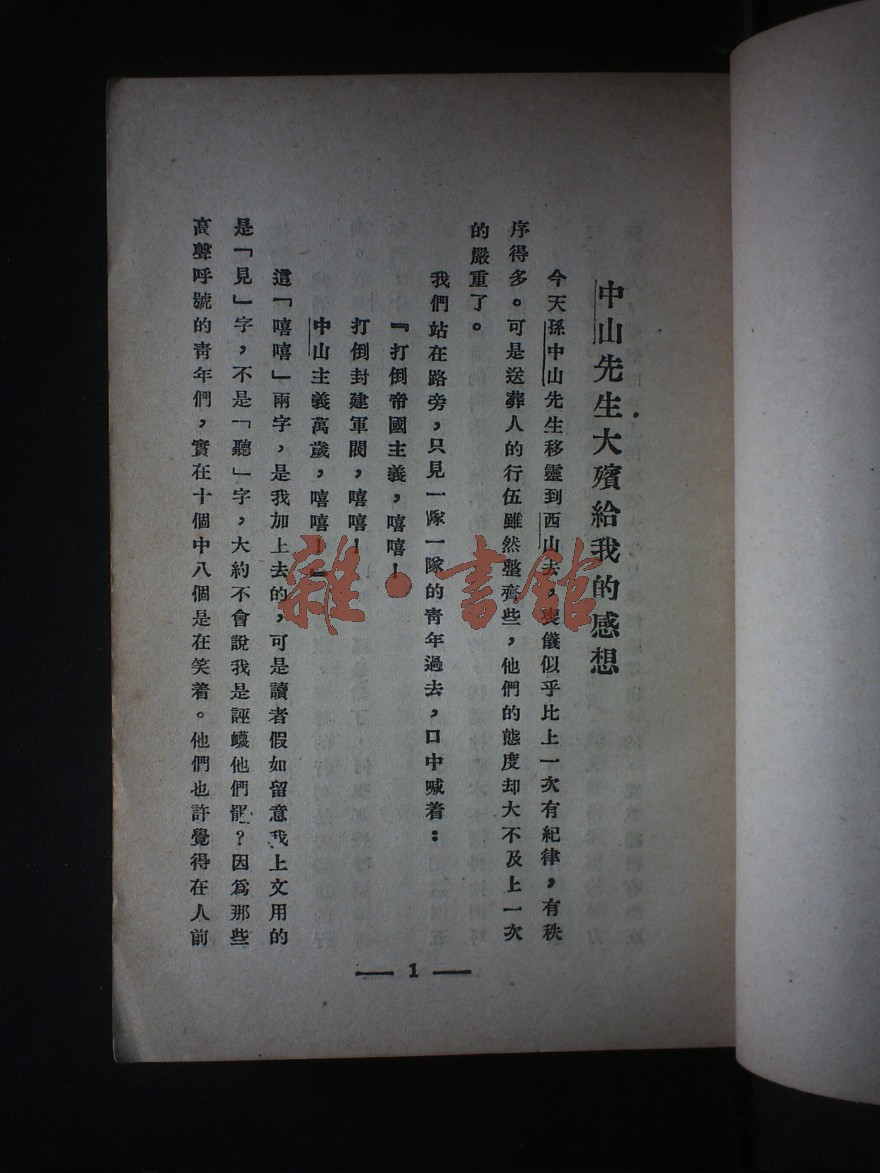 中山先生大殯給我的感想
今天孫中山先生移靈到西山去，喪儀似乎比上一次有紀律，有秩
序得多。可是送葬人的行伍雖然整齊些，他們的態度却大不及上一次
的嚴重了。
我們站在路旁，只見一隊一隊的青年過去，口中喊着：
『打倒帝國主義，嘻嘻！
打倒封建軍閥，嘻嘻！
中山主義萬歲，嘻嘻！』
這「嘻嘻」兩字，是我加上去的，可是讀者假如留意我上文用的
是「見」字，不是「聽」字，大約不會說我是誣衊他們罷？因爲那些
高聲呼號的青年們，實在十個中八個是在笑着。他們也許覺得在人前
— 1 —
雜·書館